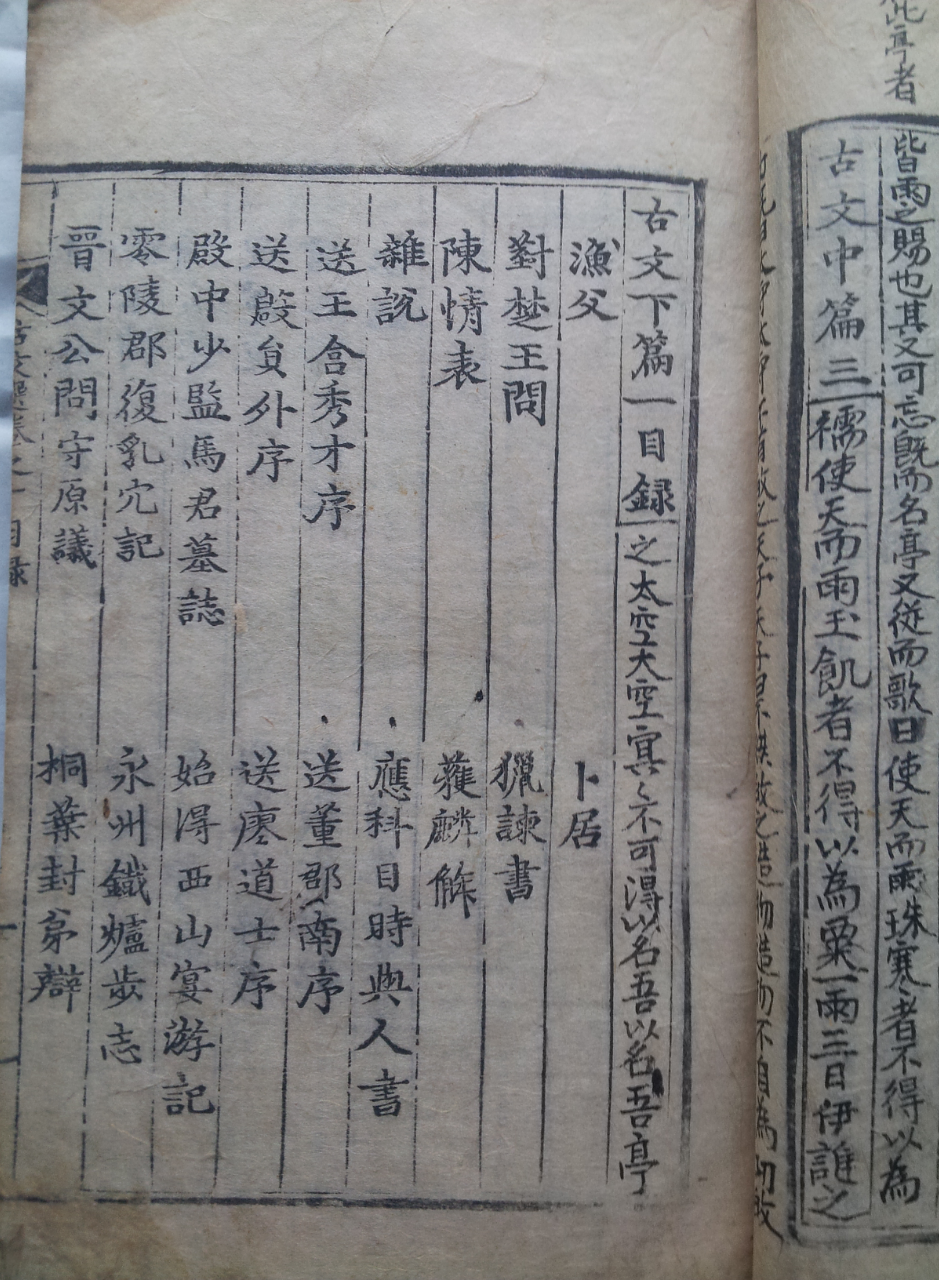 此亭者
皆雨之賜也其又可忘旣而名亭又從而歌曰使天而雨珠寒者不得以為
古文中篇三
襦使天而雨玉飢者不得以為粟一雨三日伊誰之
造物造物不自為功
古文下篇一目録
之太空太空冥〻不可得以名吾以名吾亭
漁父 卜居
對楚王問 獵諫書
陳情表 獲麟解
雜說 應科目時與人書
送王含秀才序 送董邵南序
送殷貟外序 送廖道士序
殿中少監馬君墓誌 始得西山宴游記
零陵郡復乳穴記 永州鐵爐步志
晉文公問守原議 桐葉封弟辯
目録